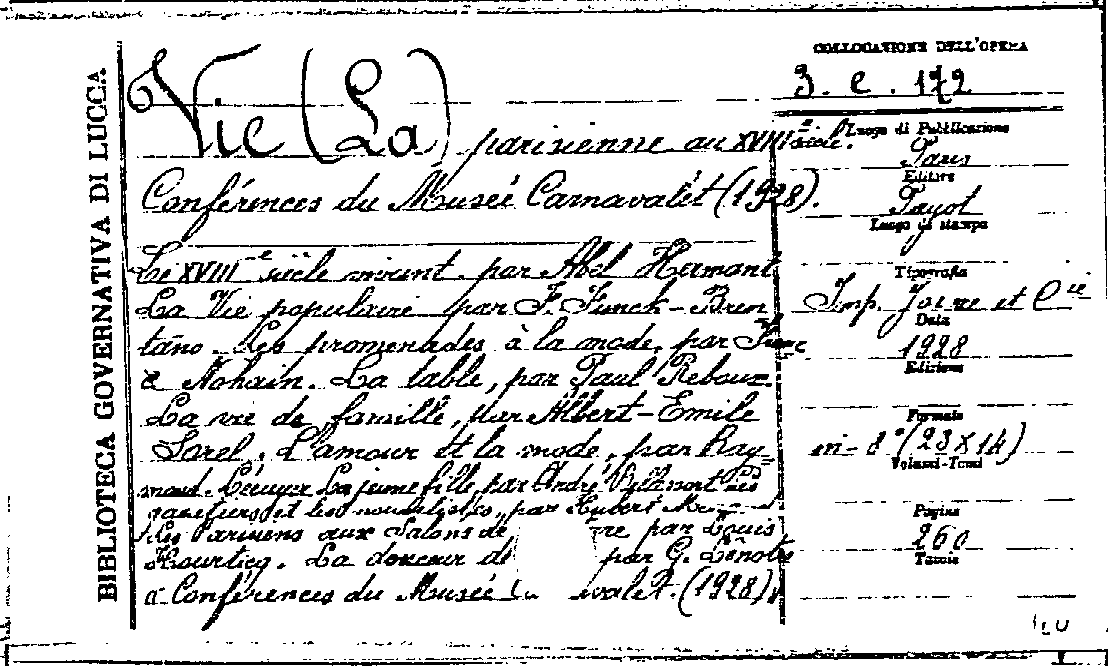 BIBLIOTECA GOVERNATIVA DI LUCCA
COLLOCAZIONE DELL'OPERA
3. e. 172
Vie (La) parisienne au XVIIIe siècle.
Conférences du Musée Carnavalet (1928).
Le XVIIIe siècle vivant, par Abel Hermant
La Vie populaire par F. Funck-Bren
tano. Les promenades à la mode, par
Nohain. La table, par Paul Reboux
La vie de famille, par Albert-Emile
Sorel. L'amour et la mode, par Ray-
mond. Lécuyer La jeune fille, par André Villemont Les
gazetiers et les nouvellistes, par Hubert
Les Parisiens aux Salons de par Louis
Hourticq. La douceur de par G. Lenotre
Conférences du Musée valet. (1928)
Luogo di Pubblicazione
Paris
Editore
Payot
Luogo di stampa
Tipografia
Imp. et Cie
Data
1928
Edizione
Formato
in-8° (23×14)
Volumi-Tomi
Pagine
260
Tavole